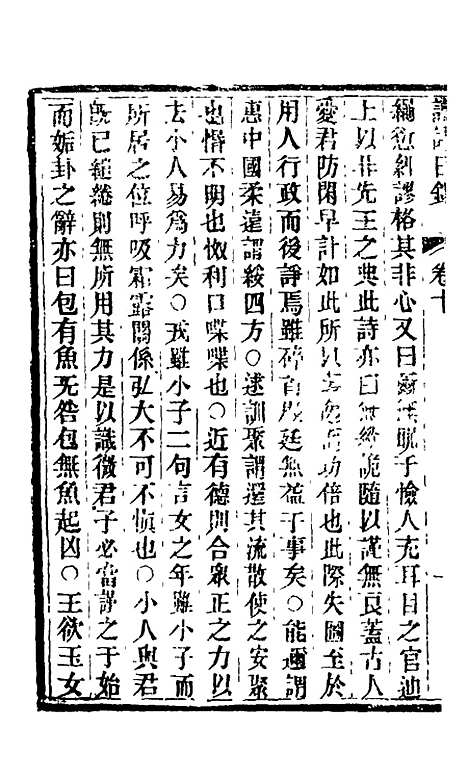 讀詩日錄 卷十
繩愆糾謬格其非心又曰爾無昵于憸人充耳目之官迪
上以非先王之典此詩亦曰無縱詭隨以謹無良蓋古人
愛君防閑早計如此所以功倍也此際失圖至於
用人行政而後諍焉雖碎首殿廷無益于事矣○能邇謂
惠中國柔遠謂綏四方○逑訓聚謂還其流散使之安聚
也惽不明也怓利口喋喋也○近有德則合衆正之力以
去小人易爲力矣○戎雖小子二句言女之年雖小子而
所居之位呼吸霜露關係弘大不可不慎也○小人與君
旣已繾綣則無所用其力是以識微君子必當謹之于始
而姤卦之辭亦曰包有魚无咎包無魚起凶○王欲玉女